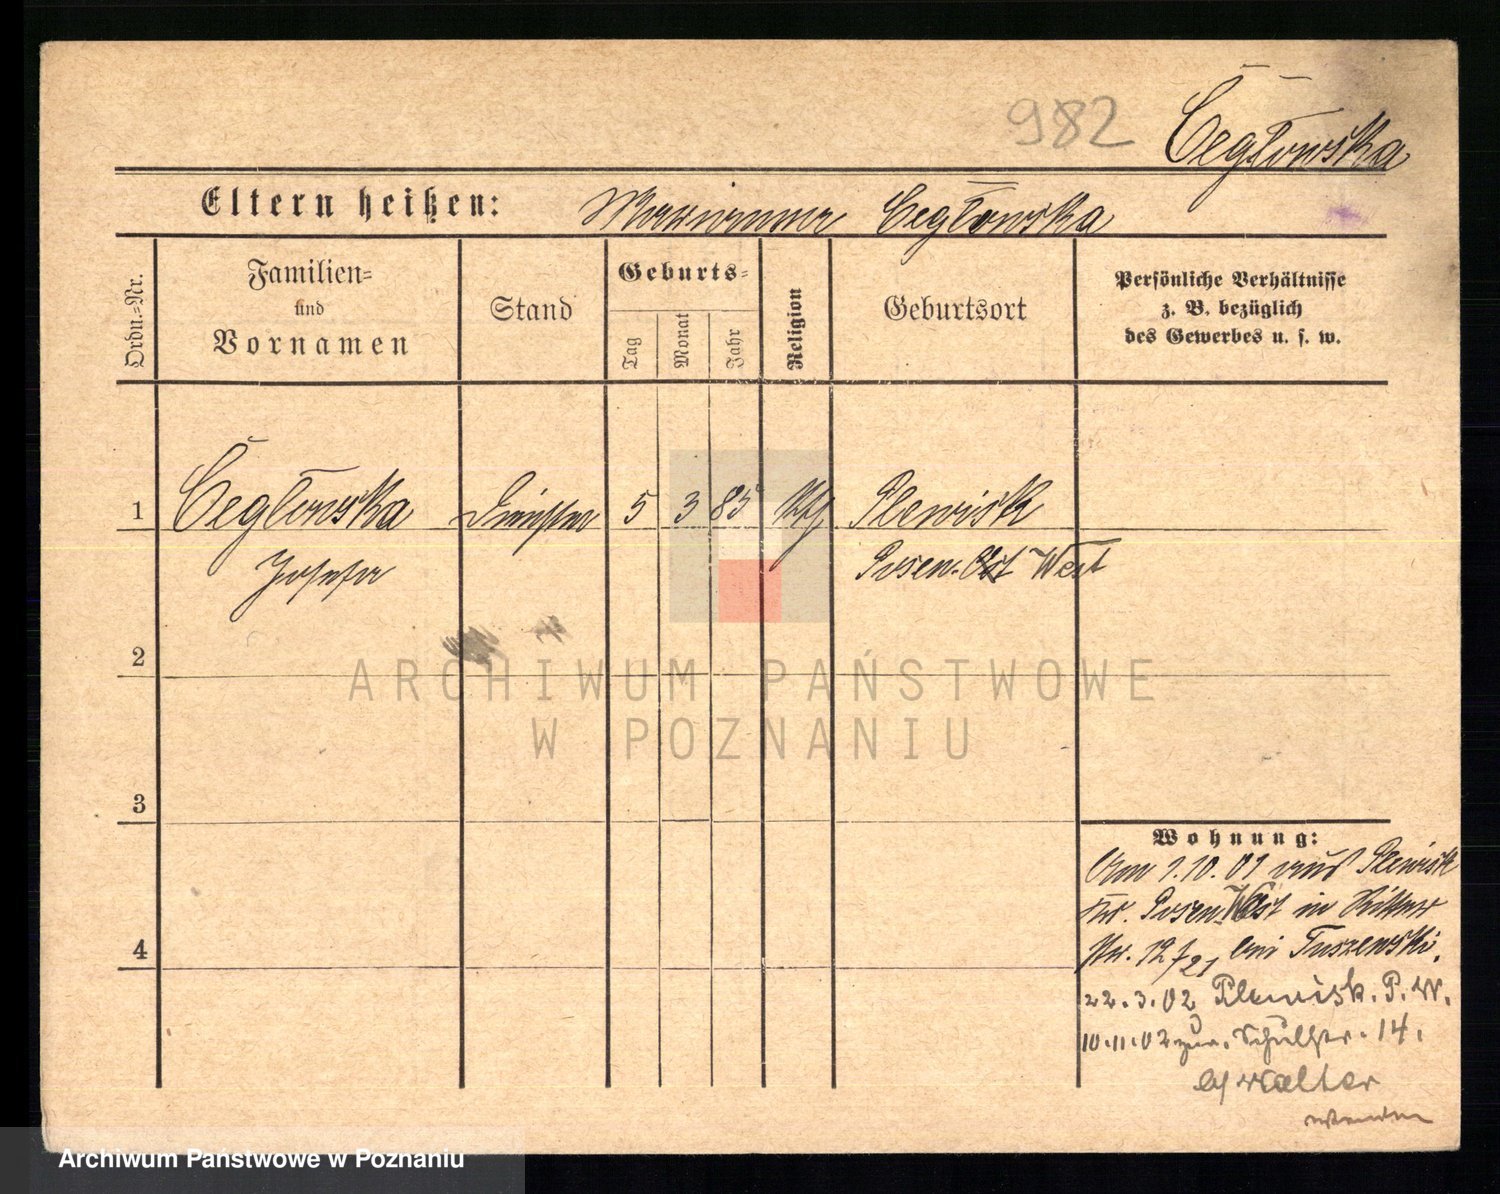 982 Cegłowska
Eltern heißen: Cegłowska
Ordn.=Nr.
Familien=
und
Vornamen
Stand
Geburts=
Tag
Monat
Jahr
Religion
Geburtsort
Persönliche Verhältnisse
z. B. bezüglich
des Gewerbes u. s. w.
1 Cegłowska 5 3 85 Plewisk
Josefa Posen. Ost West
2
ARCHIWUM PAŃSTWOWE
W POZNANIU
3
Wohnung:
Am 1.10.01 aus Plewisk
Kr. Posen West in Ritter
Str. 12/21 bei Tuszewski.
4
22.3.02 Plewisk. P. W.
10.11.02 zur. Schulstr. 14.
b/ Walter
wenden
Archiwum Państwowe w Poznaniu